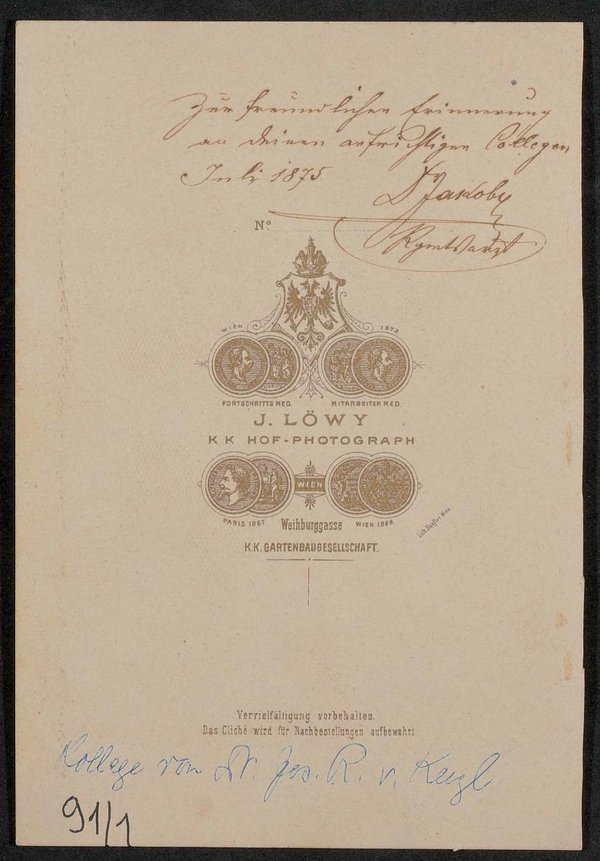 Zur freundlichen Erinnerung
an deinen aufrichtigen Collegen
Juli 1875 Dr Jakoby
Rgmtsarzt
Nº
WIEN 1873
FORTSCHRITTS MED. MITARBEITER MED.
J. LÖWY
K K HOF-PHOTOGRAPH
WIEN
PARIS 1867 Weihburggasse WIEN 1868
K.K. GARTENBAUGESELLSCHAFT.
Vervielfältigung vorbehalten.
Das Cliché wird für Nachbestellungen aufbewahrt
Kollege von Dr. Jos. R. v.
91/1